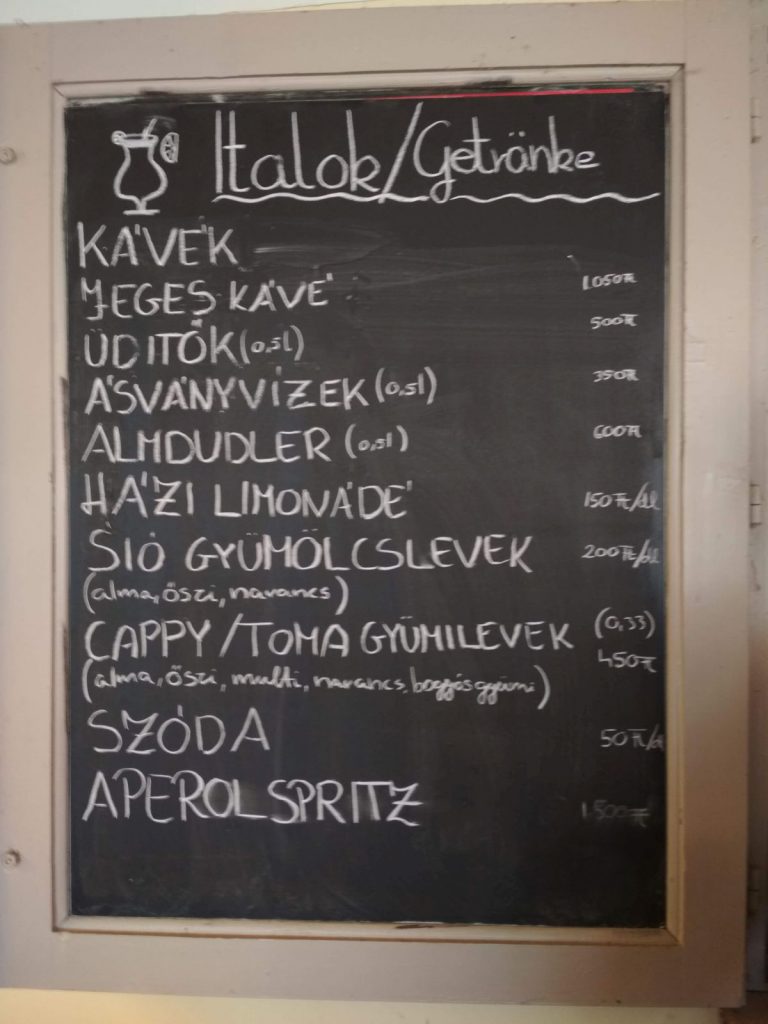 Italok/Getränke
KÁVÉK
JEGES KÁVÉ 1.050 Ft
ÜDITŐK (0,5l) 500 Ft
ÁSVÁNYVÍZEK (0,5l) 350 Ft
ALMDUDLER (0,5l) 600 Ft
HÁZI LIMONÁDÉ 150 Ft/dl
SIÓ GYÜMÖLCSLEVEK 200 Ft/dl
(alma, őszi, narancs)
CAPPY/TOMA GYÜMILEVEK (0,33)
450 Ft
(alma, őszi, multi, narancs, bogyósgyümi)
SZÓDA 50 Ft/d
APEROL SPRITZ 1.500 Ft